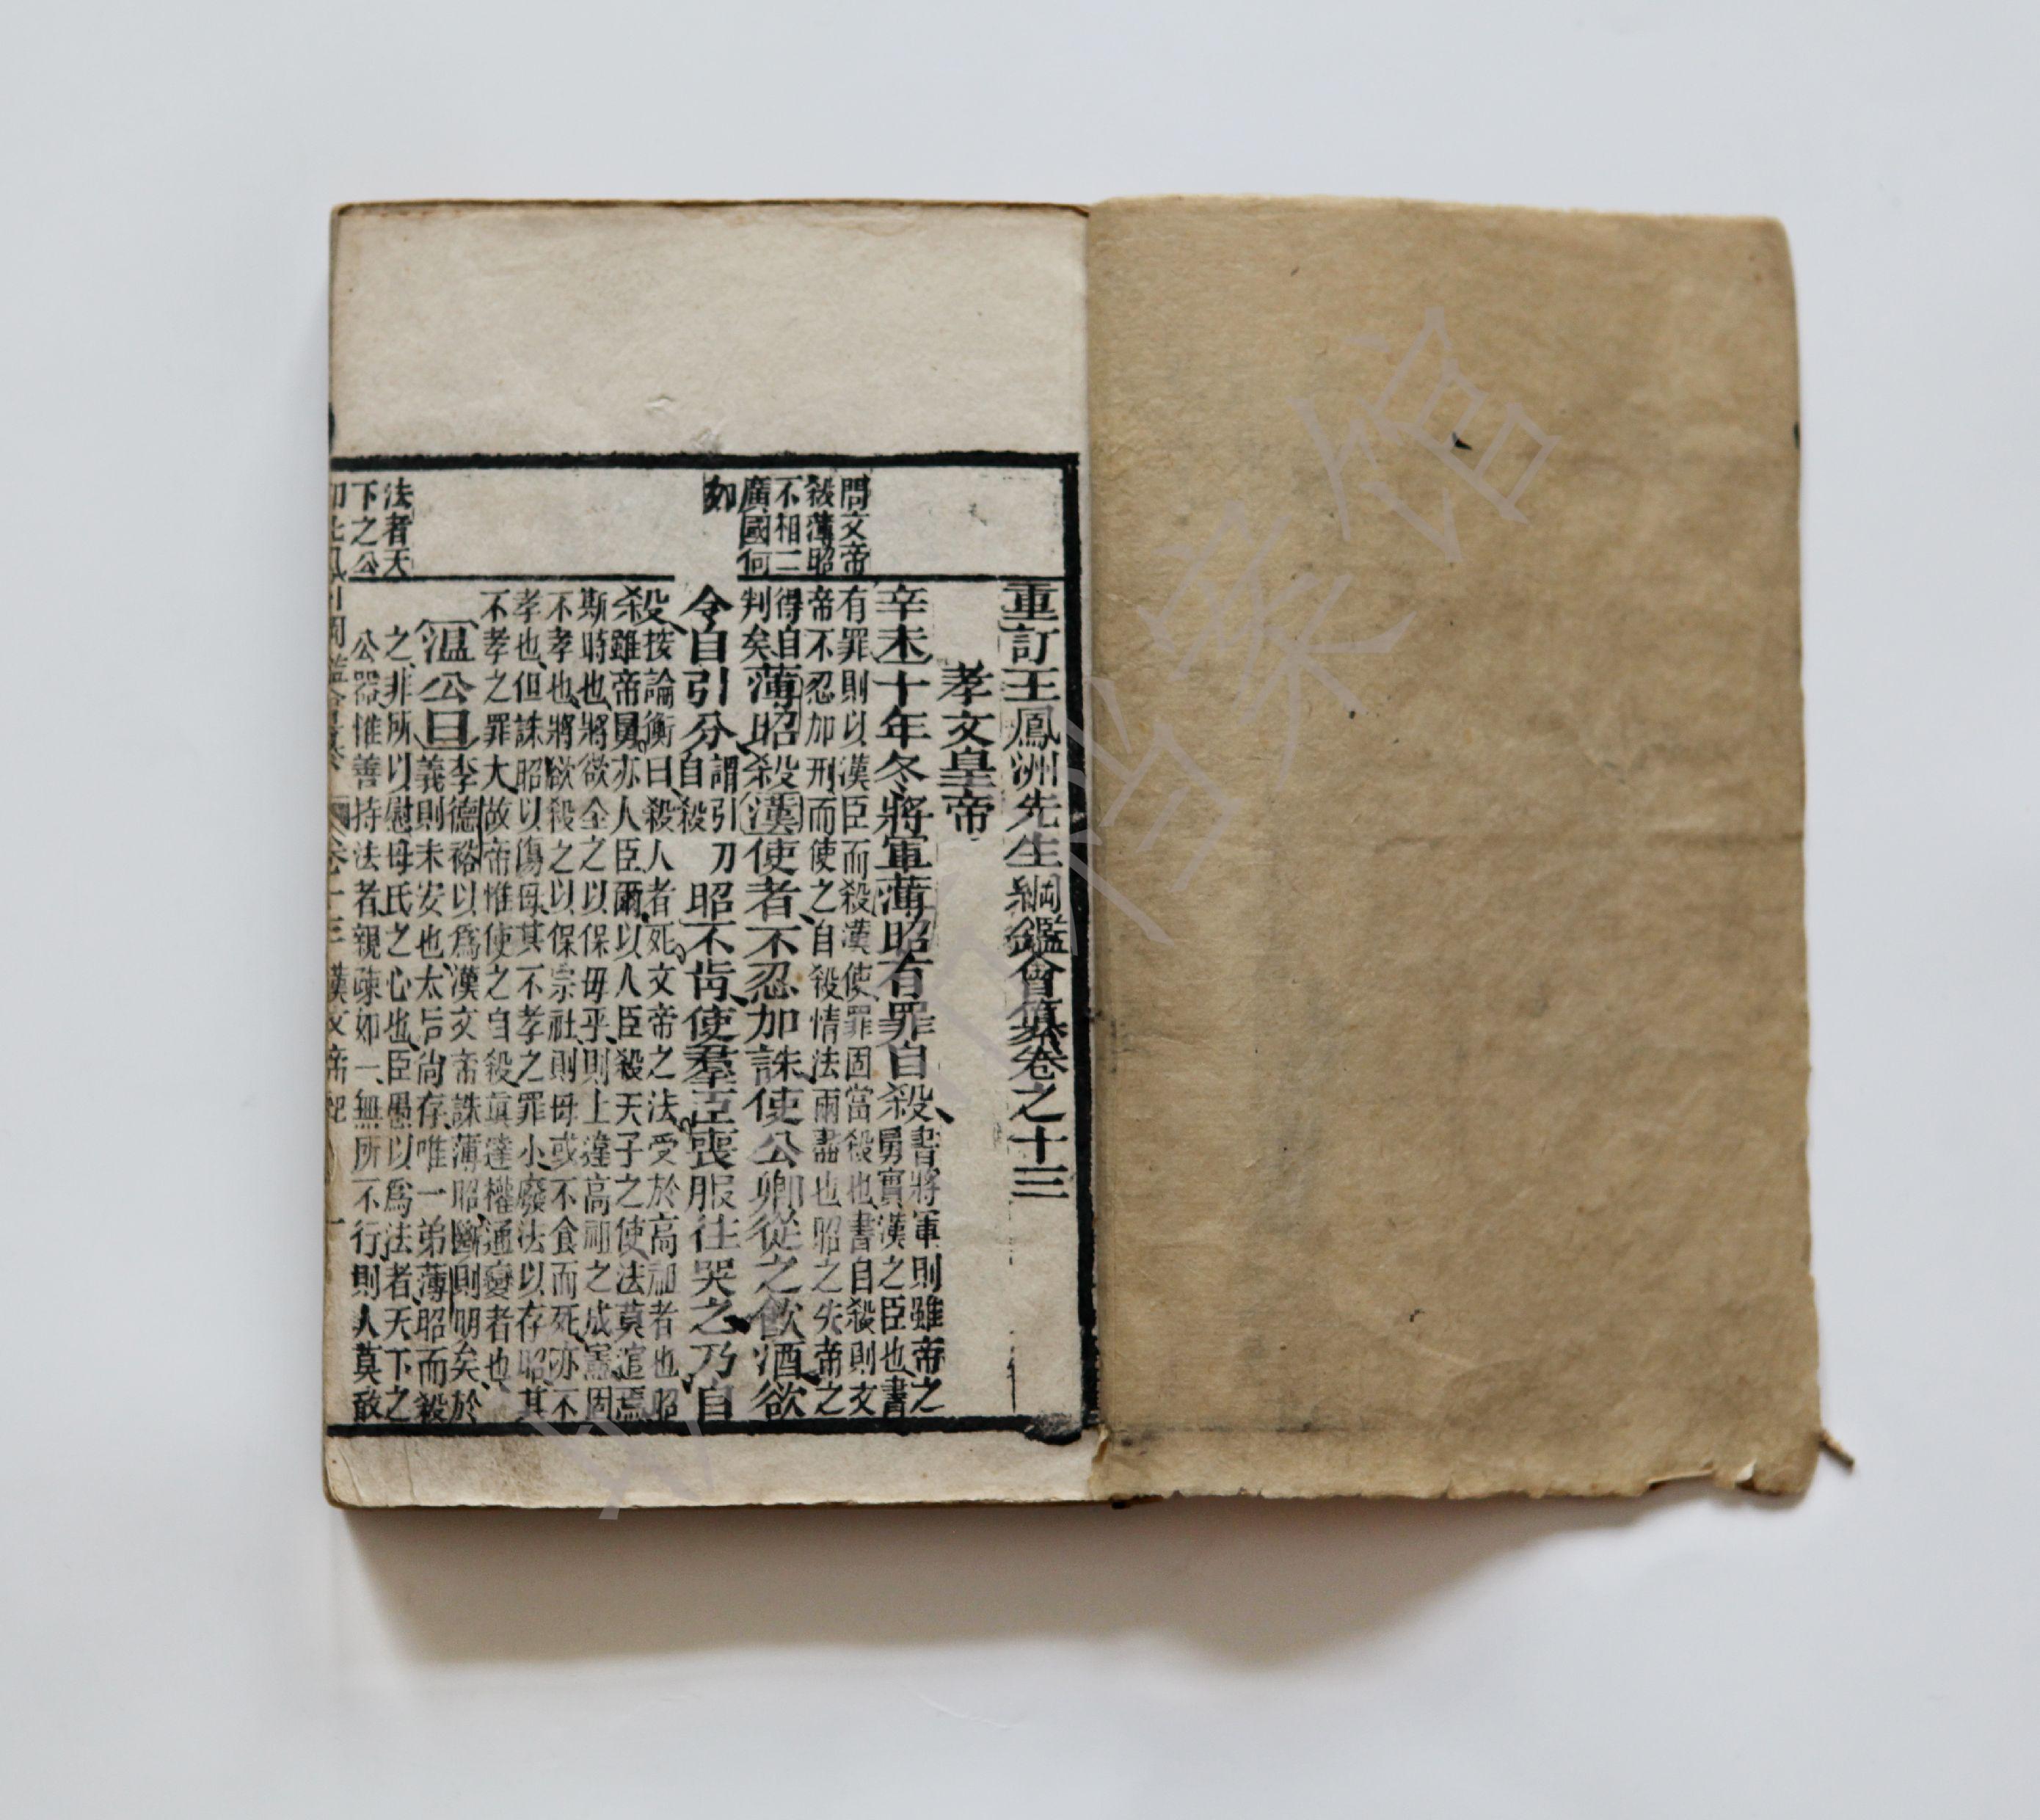 問文帝
殺薄昭
不相二
廣國何
如
法者天
下之公
重訂王鳳洲先生綱鑑會纂卷之十三
孝文皇帝
辛未十年冬將軍薄昭有罪自殺書將軍則雖帝之
舅實漢之臣也書
有罪則以漢臣而殺漢使罪固當殺也書自殺則文
帝不忍加刑而使之自殺情法兩盡也昭之失帝之
得自
判矣薄昭殺漢使者不忍加誅使公卿從之飲酒欲
令自引分謂引刀自殺昭不肯使羣臣喪服往哭之乃自
殺按論衡曰殺人者死文帝之法受於高祖者也昭
雖帝舅亦人臣爾以人臣殺天子之使法莫逭焉
斯時也將欲全之以保母乎則上違高祖之成憲固
不孝也將欲殺之以保宗社則母或不食而死亦不
孝也但誅昭以傷母其不孝之罪小廢法以存昭其
不孝之罪大故帝惟使之自殺眞達權通變者也
溫公曰李德裕以爲漢文帝誅薄昭斷則明矣於
義則未安也太后尚存唯一弟薄昭而殺
之非所以慰母氏之心也臣愚以爲法者天下之
公器惟善持法者親疎如一無所不行則人莫敢
卷十三 漢文帝紀 一
档案馆